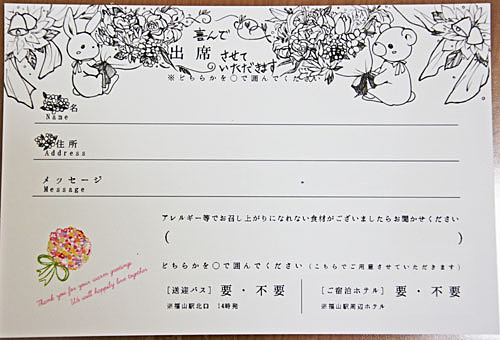 喜んで
出席 させて
いただきます
※どちらかを○で囲んでください
名
Name
住所
Address
メッセージ
Message
アレルギー等でお召し上がりになれない食材がございましたらお聞かせください
( )
どちらかを○で囲んでください (こちらでご用意させていただきます)
[送迎バス] 要・不要 [ご宿泊ホテル] 要・不要
※福山駅北口 14時発 ※福山駅周辺ホテル
Thank you for your warm greetings
We will happily live together